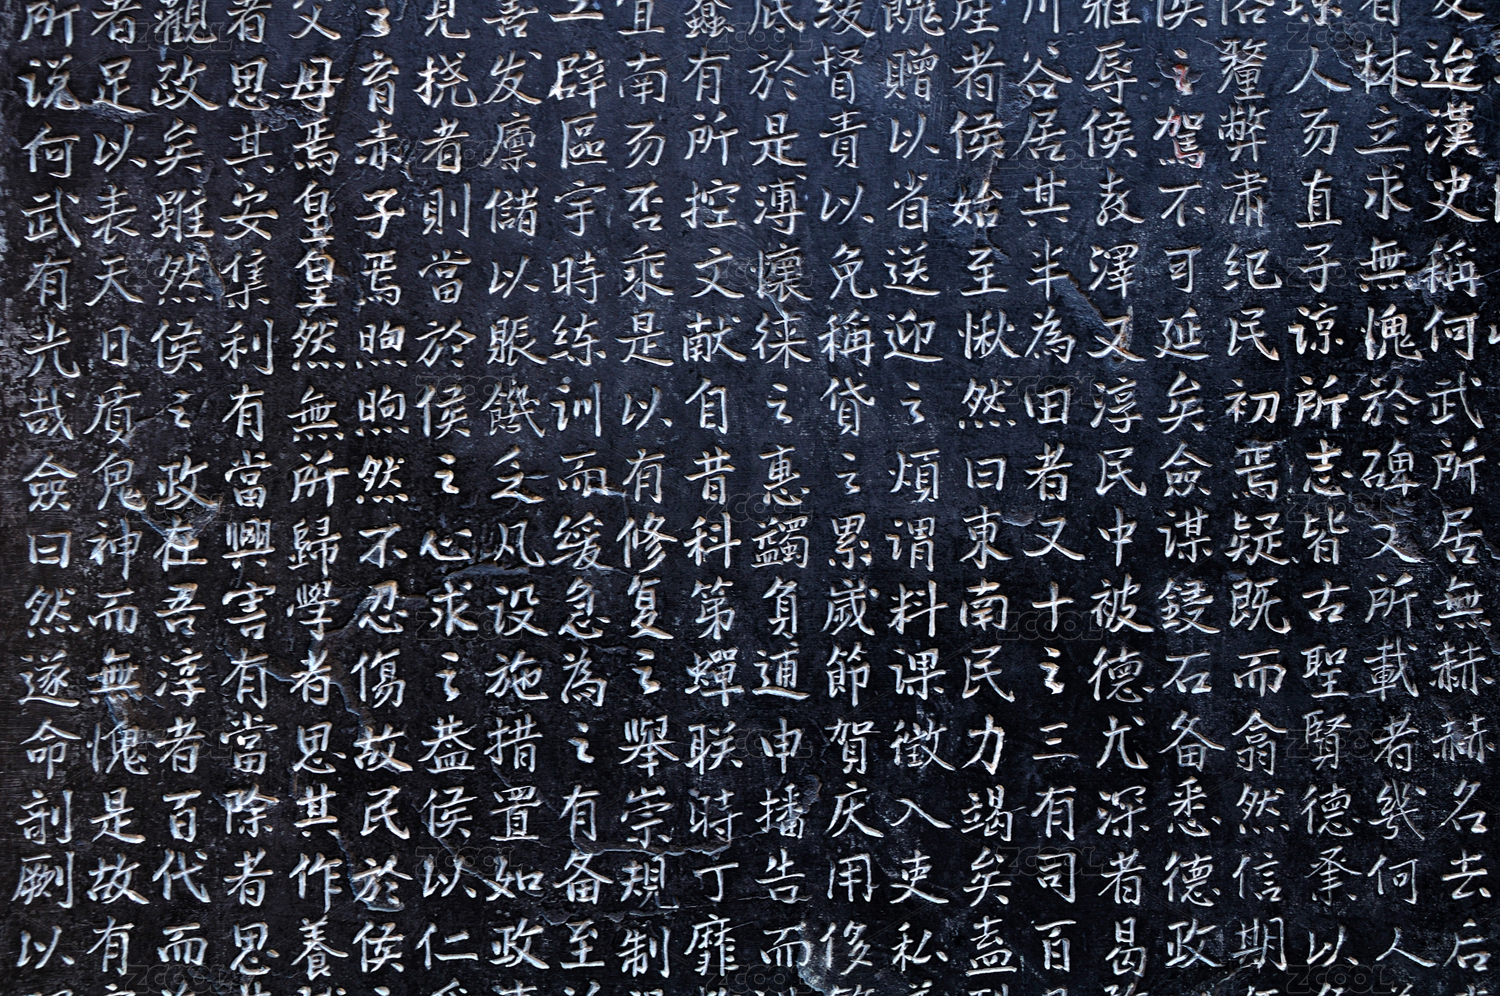 迨漢史稱何武所居無赫赫名去后
林立求無愧於碑文所載者幾何人
人勿直子諒所志皆古聖賢德以
俗釐弊肅纪民初焉疑既而翕然信期
侯之駕不可延矣僉谋鋟石备悉德政
雅辱侯教澤又淳民中被德尤深者曷
川谷居其半為田者又十之三有司百
産者侯始至愀然曰東南民力竭矣盍
餽贈以省送迎之煩谓料课徵入吏私
绫督責以免稱貸之累歲節賀庆用侈
底於是溥懷徠之惠蠲負逋申播告而
蠱有所控文献自昔科第蟬联時丁靡
宜南勿否乘是以有修复之舉崇規制
辟區宇時练训而缓急為之有备至
善发廪儲以賬饑乏凡设施措置如政
見挠者則當於侯之心求之蓋侯以仁
育赤子焉煦煦然不忍傷故民於侯
父母焉皇皇然無所歸學者思其作養
者思其安集利有當興害有當除者思
觀政矣雖然侯之政在吾淳者百代而
者足以表天日质鬼神而無愧是故有
所说何武有光哉僉曰然遂命剞劂以